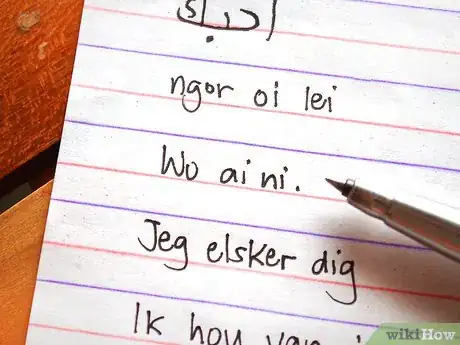 ngor oi lei
Wo ai ni.
Jeg elsker dig
Ik hou van
wikiHow